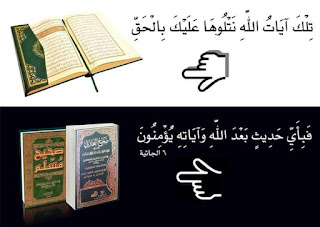 تِلْكَ آيَاتُ اللَّهِ نَتْلُوهَا عَلَيْكَ بِالْحَقِّ
فَبِأَيِّ حَدِيثٍ بَعْدَ اللَّهِ وَآيَاتِهِ يُؤْمِنُونَ
٦ الجاثية
صحيح البخاري
صحيح مسلم